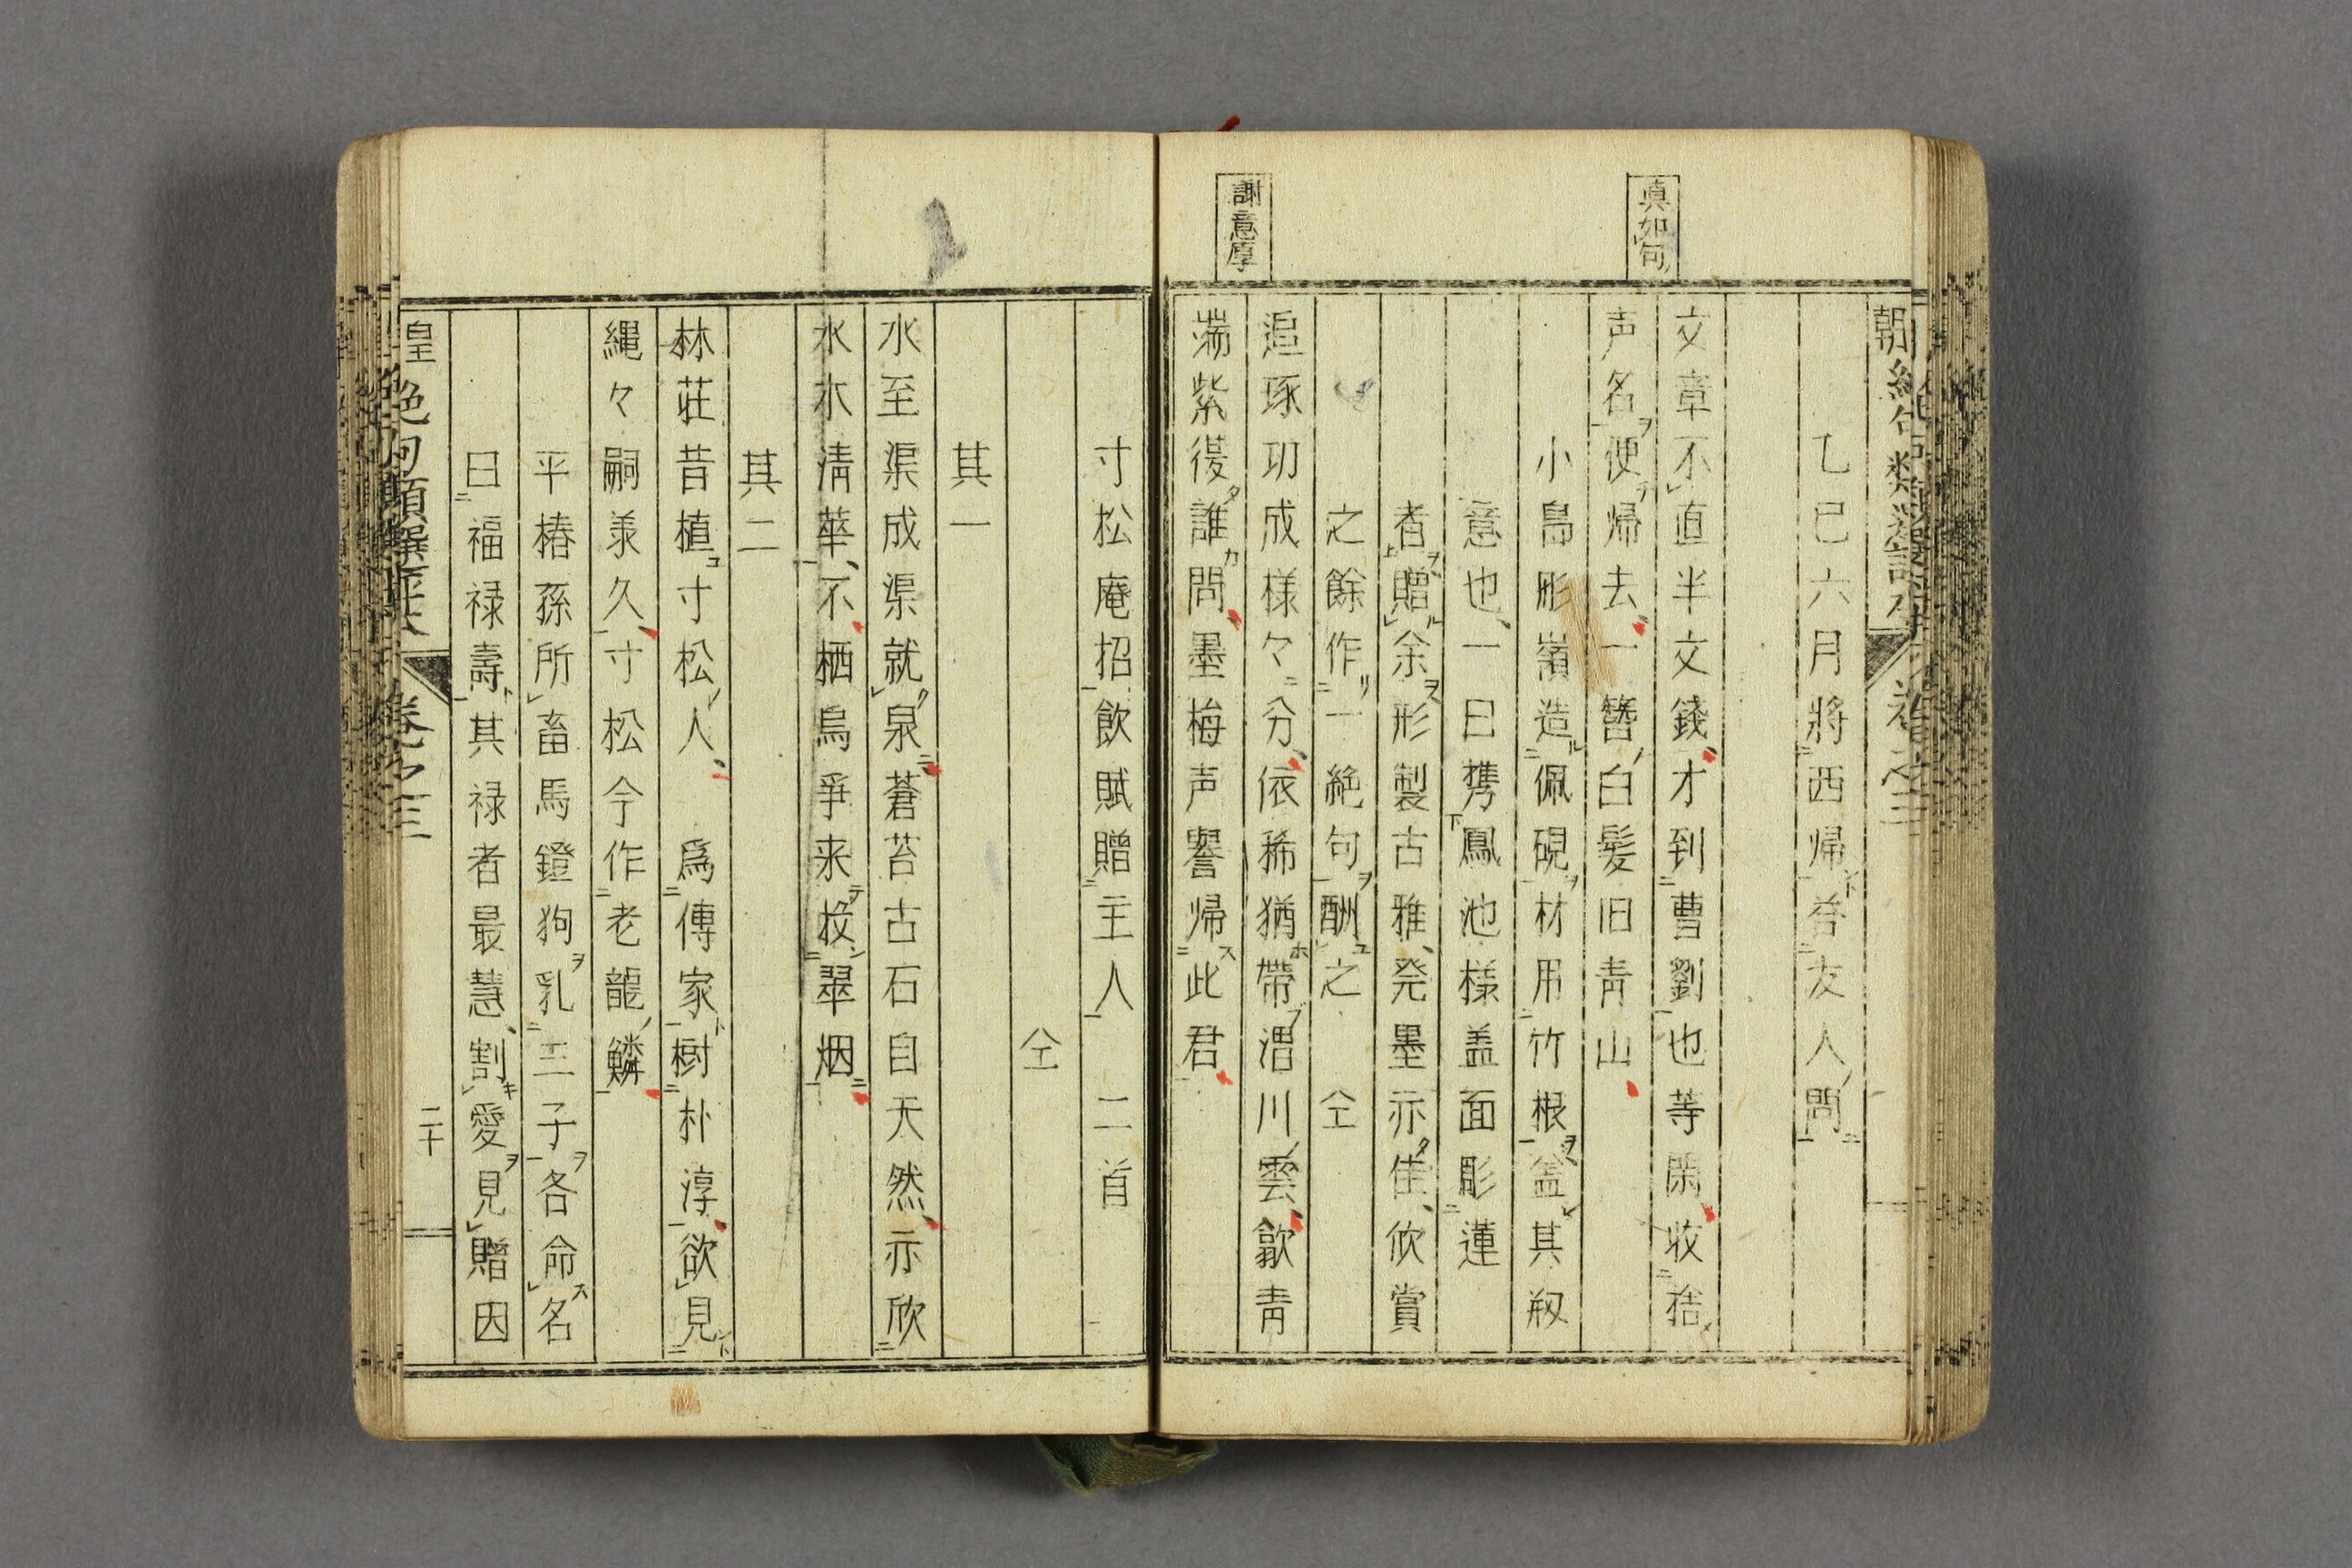 真如句
謝意厚
乙巳六月將西帰答友人問
文章不直半文錢才到曹劉也等閑收捨
声名便帰去一簪白髪旧青山
小島彫嶺造佩硯材用竹根盆其叙
意也一日携鳳池様盖面彫蓮
者贈余形製古雅発墨亦佳欣賞
之餘作一絶句酬之 仝
追琢功成様々分依稀猶帶渭川雲歙青
端紫從誰問墨梅声譽帰此君
寸松庵招飲賦贈主人 二首
仝
其一
水至渠成渠就泉蒼苔古石自天然亦欣
水木清華不栖烏爭来投翠烟
其二
林荘昔植寸松人 為傳家樹朴淳欲見
縄々嗣羕久寸松今作老龍鱗
平椿孫所畜馬鐙狗乳三子各命名
曰福禄壽其禄者最慧割愛見贈因
皇 絶句類撰 卷之三
二十